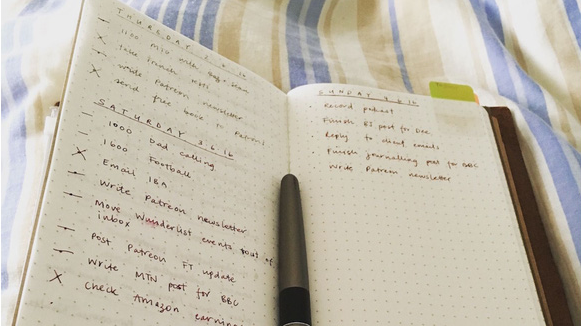 THURSDAY 2.6.16
– 1130 MTG with
x Take lunch
x write Patreon newsletter
– send free back to Patrons
SATURDAY 3.6.16
– 1000 Dad calling
– 1600 Football
x Email IBA
– Write Patreon newsletter
– Move Wunderlist events out of
inbox
– Post Patreon FT update
– Write MTN post for BBC
x Check Amazon
SUNDAY 4.6.16
· Record podcast
· Finish BJ post for Dee
· Reply to client emails
· Finish journalling post for BBC
· Write Patreon newsletter